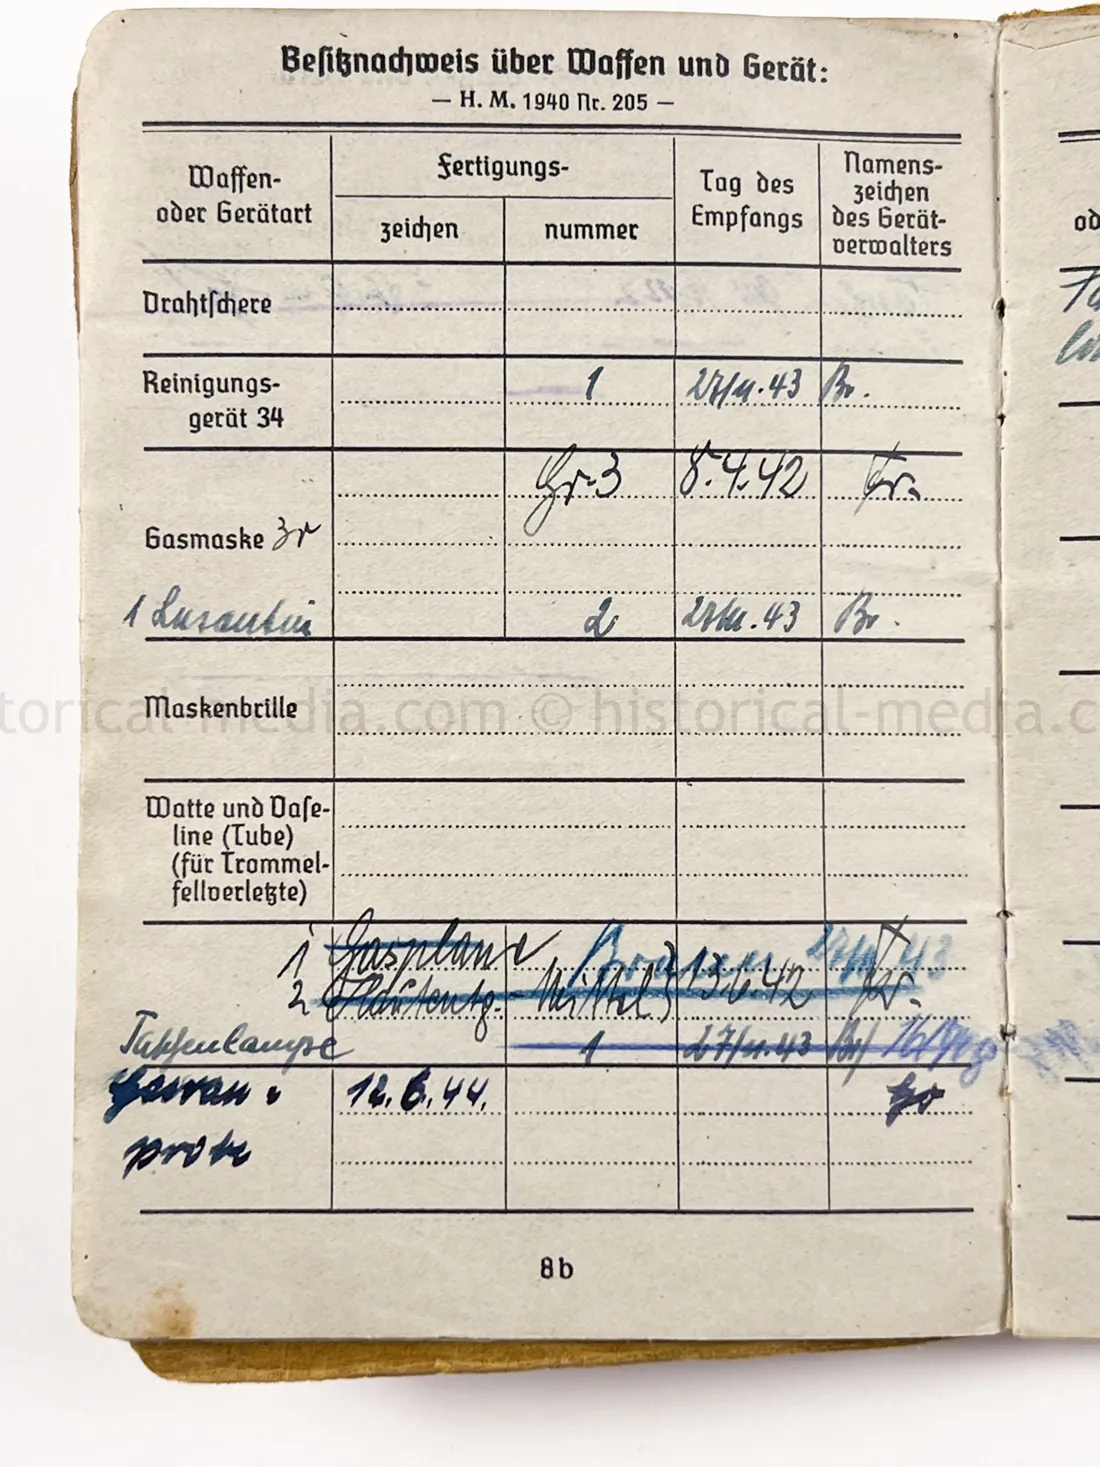 Besitznachweis über Waffen und Gerät:
— H. M. 1940 Nr. 205 —
Waffen-
oder Gerätart
Fertigungs-
zeichen
nummer
Tag des
Empfangs
Namens-
zeichen
des Gerät-
verwalters
Drahtschere
Reinigungs-
gerät 34
1 27/11.43 Br.
Gr. 3 8.4.42
Gasmaske
1 Losantin 2 27/11.43 Br.
Maskenbrille
Watte und Vase-
line (Tube)
(für Trommel-
fellverletzte)
1 Gasplane
2 13.6.42
Taschenlampe 1 27/11.43 Br
12.6.44.
8b
historical-media.com © historical-media.c
od